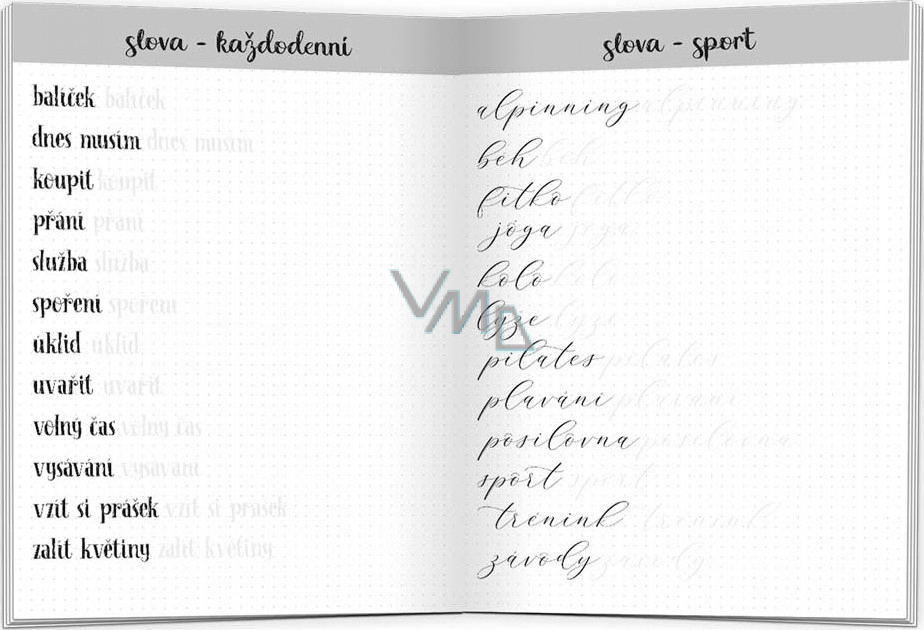 slova - každodenní
balíček balíček
dnes musím dnes musím
koupit koupit
přání přání
služba služba
spoření spoření
úklid úklid
uvařit uvařit
volný čas volný čas
vysávání vysávání
vzít si prášek vzít si prášek
zalít květiny zalít květiny
slova - sport
alpinning alpinning
běh běh
fitko fitko
jóga jóga
kolo kolo
lyže lyže
pilates pilates
plavání plavání
posilovna posilovna
sport sport
trénink trénink
závody závody
VMD